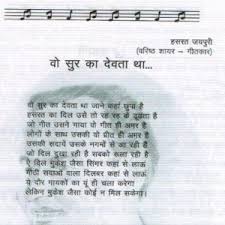 हसरत जयपुरी
(वरिष्ठ शायर – गीतकार)
वो सुर का देवता था...
वो सुर का देवता जाने कहां छुपा है
हसरत का दिल उसे तो रह रह के ढूंढता है
जो गीत उसने गाया वो गीत ही अमर है
लोगों के साथ उसकी वो प्रीत ही अमर है
उसकी सदायें उसके नगमों से आ रही हैं
जो दिल दुखा रही है सबको रूला रही है
ऐ दिल मुकेश जैसा सिंगर कहां से लाऊं
मीठी सदाओं वाला दिलबर कहां से लाऊं
ये दौर गायकों का यूं ही चला करेगा
लेकिन मुकेश जैसा कोई न मिल सकेगा।